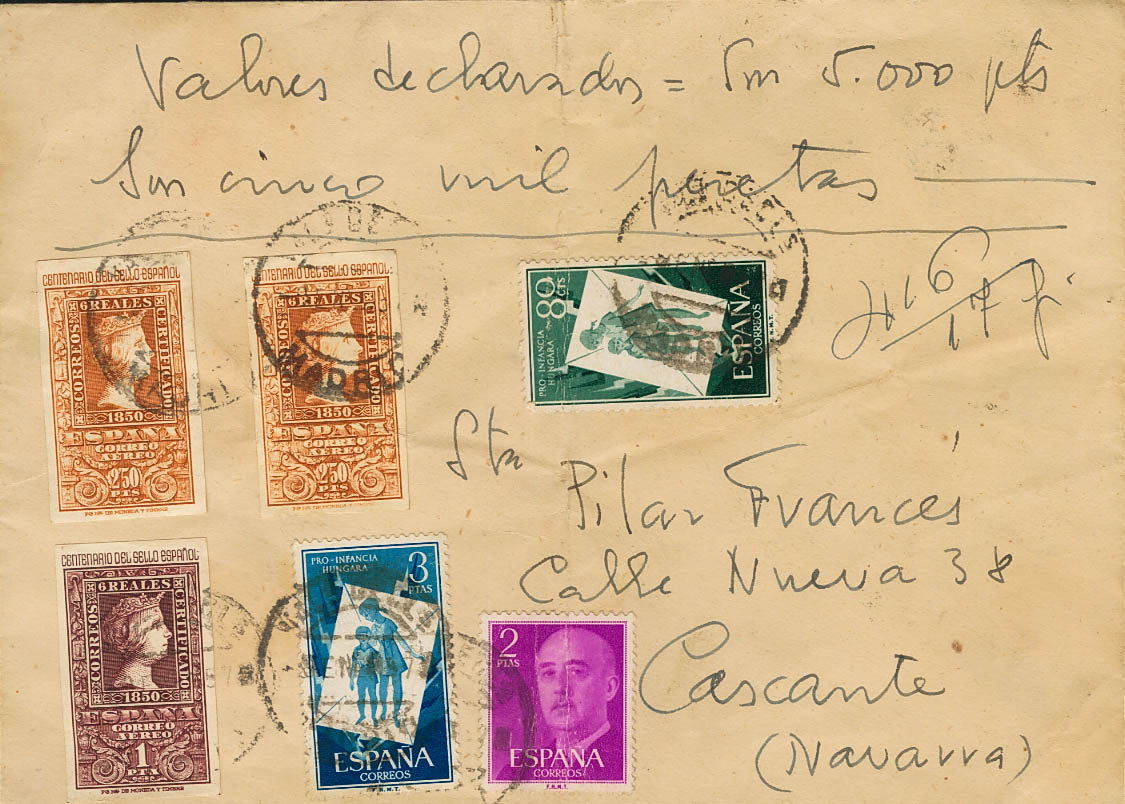 Valores declarados = Son 5.000 pts
Son cinco mil pesetas
CENTENARIO DEL SELLO ESPAÑOL
6 REALES
CORREOS
CERTIFICADO
1850
ESPAÑA
CORREO
AEREO
2'50
PTS
CENTENARIO DEL SELLO ESPAÑOL
6 REALES
CORREOS
CERTIFICADO
1850
ESPAÑA
CORREO
AEREO
2'50
PTS
MADRID
80 CTS
PRO-INFANCIA
HUNGARA
ESPAÑA
CORREOS
F.N.M.T.
Sta Pilar Francés
Calle Nueva 38
Cascante
(Navarra)
CENTENARIO DEL SELLO ESPAÑOL
6 REALES
CORREOS
CERTIFICADO
1850
ESPAÑA
CORREO
AEREO
1
PTA
PRO-INFANCIA
HUNGARA
3
PTAS
ESPAÑA
CORREOS
F.N.M.T.
2
PTAS
ESPAÑA
CORREOS
F.N.M.T.